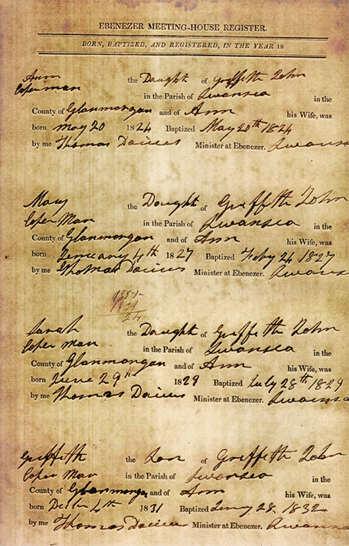 EBENEZER MEETING-HOUSE REGISTER.
BORN, BAPTIZED, AND REGISTERED, IN THE YEAR 18
Ann the Daught of Griffith John
Coperman in the Parish of Swansea in the
County of Glanmorgan and of Ann his Wife, was
born May 20 1824 Baptized May 20th 1824
by me Thomas Davies Minister at Ebenezer. Swansea
Mary the Dought of Griffith John
Coper Man in the Parish of Swansea in the
County of Glanmorgan and of Ann his Wife, was
born 4th 1827 Baptized Feby 24 1827
by me Thomas Davies Minister at Ebenezer. Swansea
24
Sarah the Daught of Griffith John
Coper man in the Parish of Swansea in the
County of Glanmorgan and of Ann his Wife, was
born June 29th 1829 Baptized July 28th 1829
by me Thomas Davies Minister at Ebenezer. Swansea
Griffith the Son of Griffith John
Coper Man in the Parish of Swansea in the
County of Glanmorgan and of Ann his Wife, was
born 4th 1831 Baptized 28. 1832
by me Thomas Davies Minister at Ebenezer. Swansea